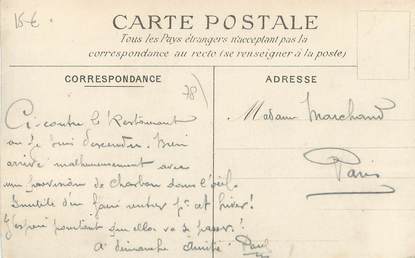 15 €
CARTE POSTALE
Tous les Pays étrangers n'acceptant pas la
correspondance au recto (se renseigner à la poste)
CORRESPONDANCE
ADRESSE
78)
Ci-contre le Restaurant
où je suis descendu. Bien
arrivé malheureusement avec
une provision de Charbon dans l'œil.
Inutile d'en faire rentrer pr cet hiver!
J'espère pourtant que elle va se passer!
A dimanche Amitiés Paul
Madame Marchand
Paris